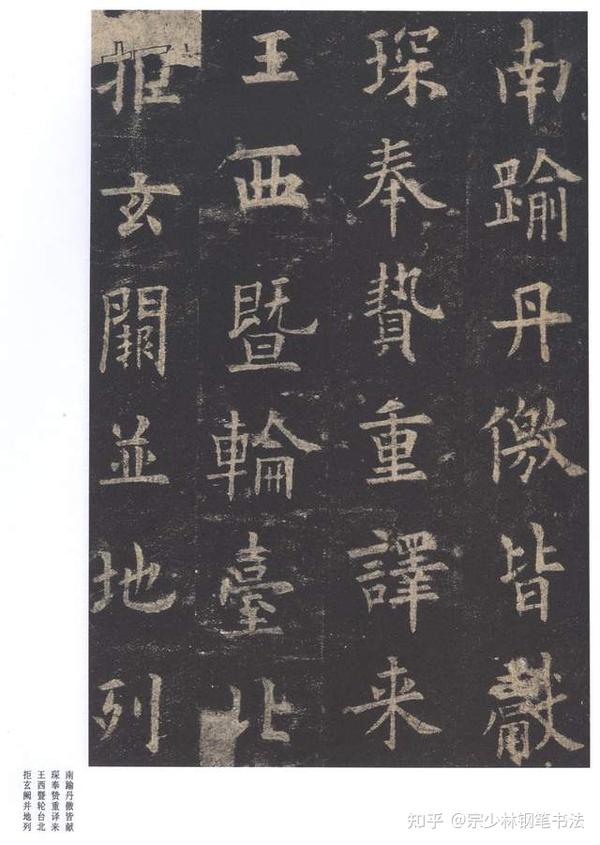 南踰丹儌皆獻
琛奉贄重譯来
王西暨輪臺北
拒玄闕並地列
南踰丹儌皆献
琛奉贽重译来
王西暨轮台北
拒玄阙并地列
知乎 @宗少林钢笔书法